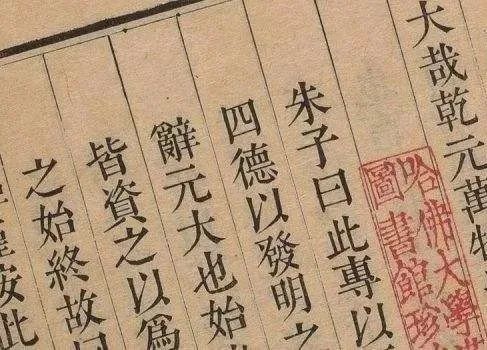 大哉乾元萬物
朱子曰此專以
四德以發明之
辭元大也始
皆資之以爲
之始終故
此
哈佛大學漢
圖書館珍